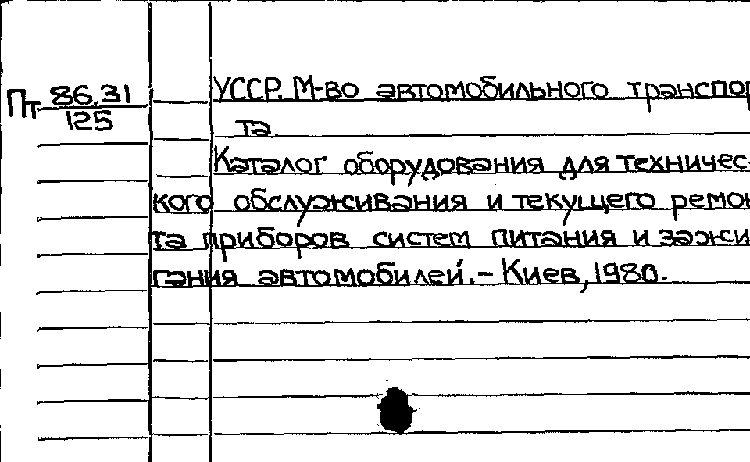 Пт 86.31
125
УССР. М-во автомобильного транспор
та
Каталог оборудования для техничес-
кого обслуживания и текущего ремон
та приборов систем питания и зажи
гания автомобилей. – Киев, 1980.